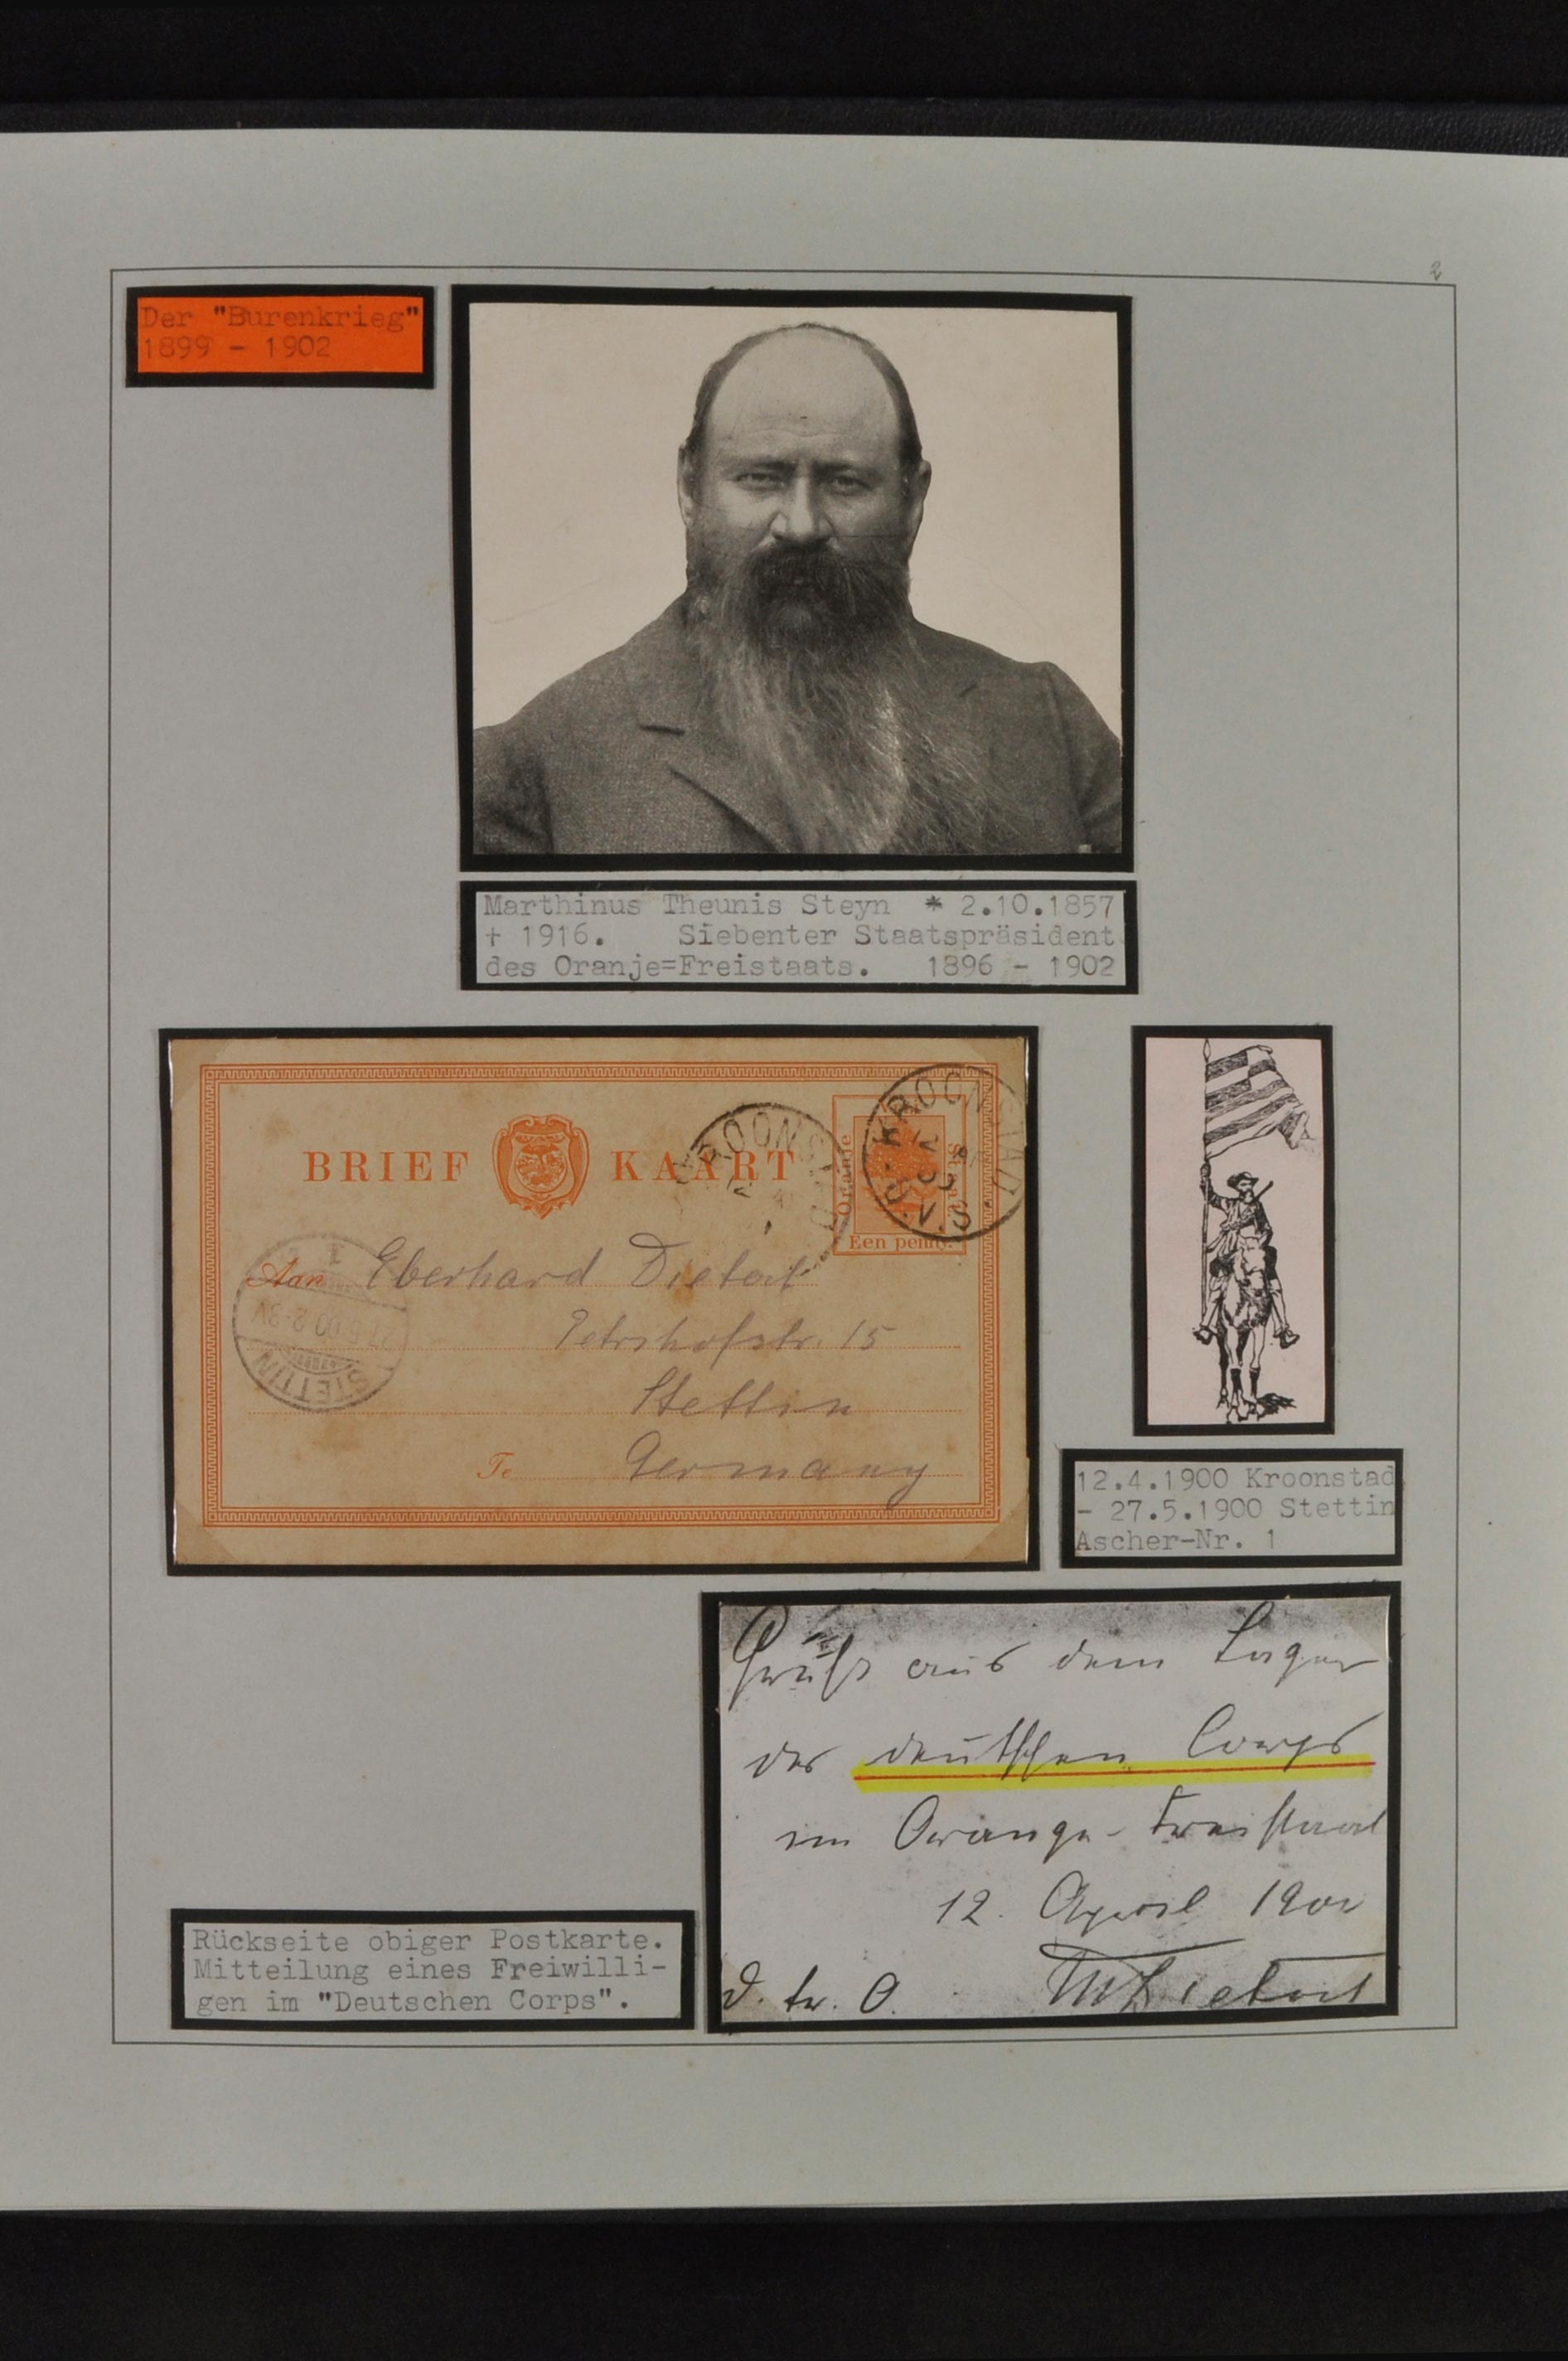 2
Der "Burenkrieg"
1899 - 1902
Marthinus Theunis Steyn * 2.10.1857
+ 1916. Siebenter Staatspräsident
des Oranje=Freistaats. 1896 - 1902
BRIEF KAART
KROONSTAD
KROONSTAD
O.V.S.
Oranje
Een penny.
Aan Eberhard Dietert
Petrihofstr. 15
Stettin
To Germany
STETTIN
27.5.00.2-3V
12.4.1900 Kroonstad
- 27.5.1900 Stettin
Ascher-Nr. 1
Gruß aus dem Lager
des deutschen Corps
im Orange-Freistaat
12. April 1900
D. tr. O.
Dietert
Rückseite obiger Postkarte.
Mitteilung eines Freiwilli-
gen im "Deutschen Corps".